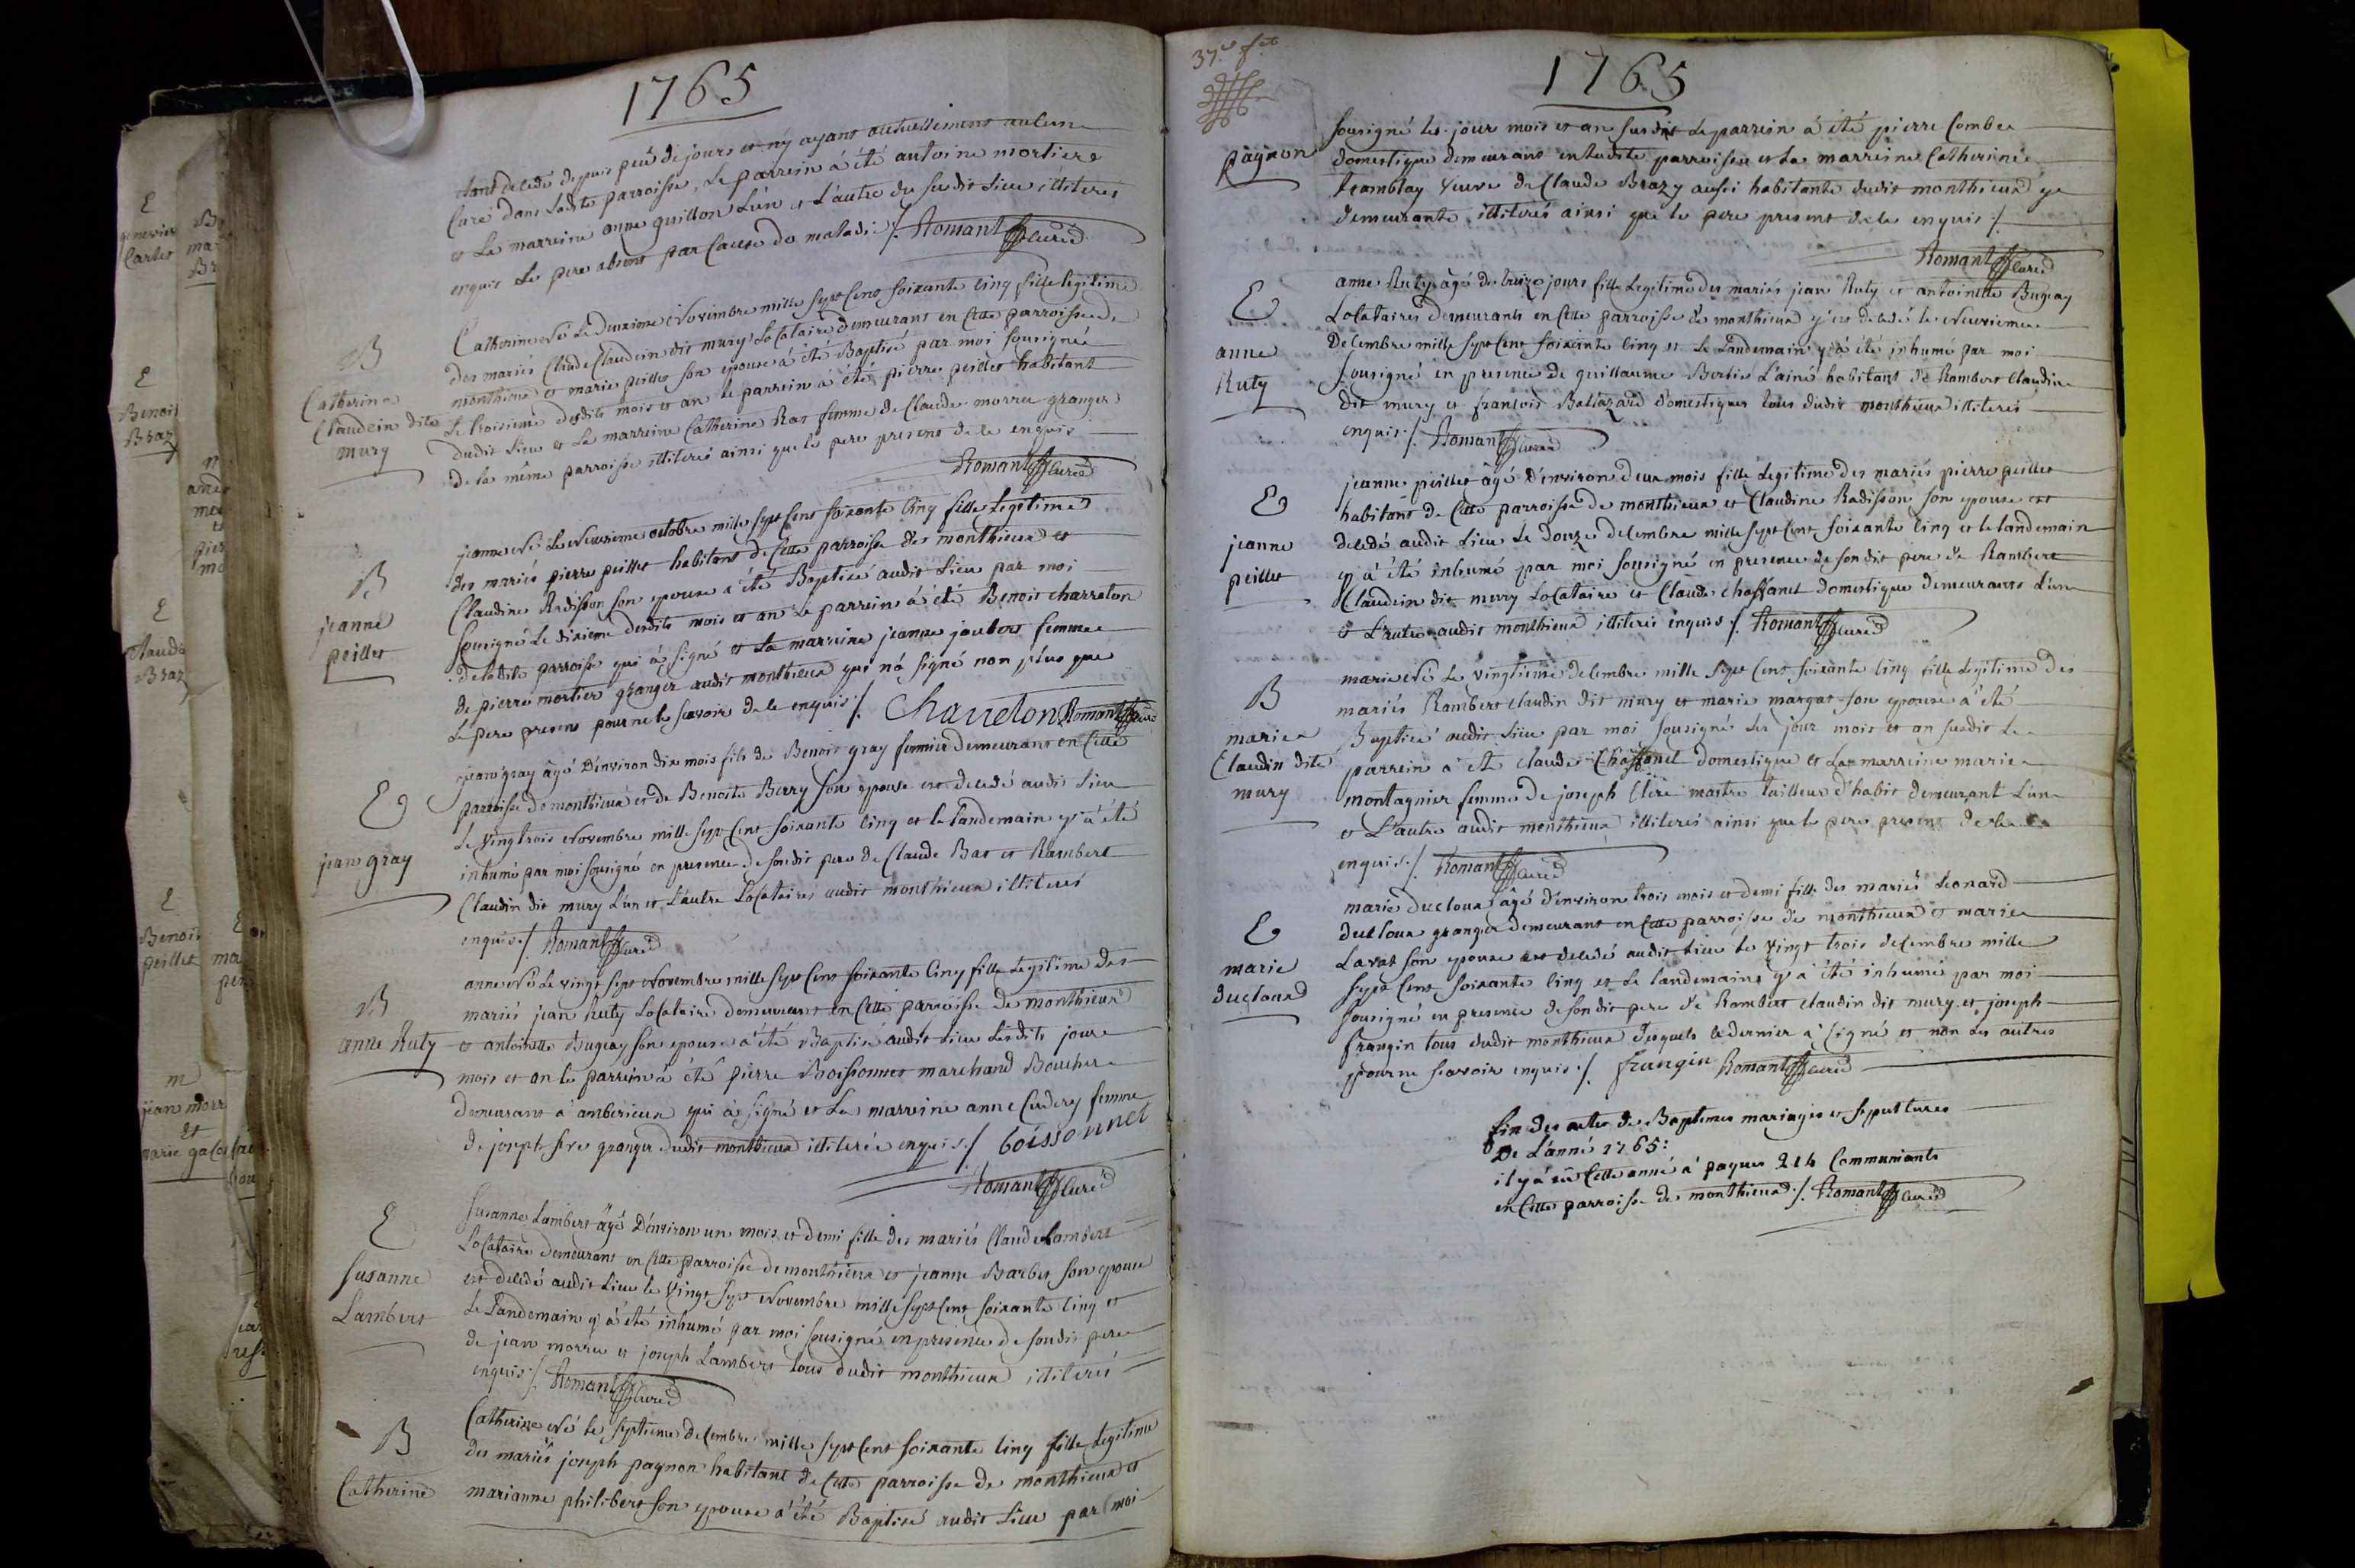 1765
depuis peu de jours et n'y ayant actuellement aulune
Curé dans Ladite parroisse, Le parrein à été antoine mortiere
et La marreine anne guillon L'un et L'autre du susdit Lieu illiteres
enquis Le pere absent par Cause de maladie /. Romant Curé
B
Catherine
Claudein dite
mury
Catherine Né Le deuxieme Novembre mille sept Cent soixante Cinq fille legitime
des mariés Claude Claudein dit mury Locataire demeurant en Cette parroisse de
monthieux et marie peillet son epouse à été Baptisé par moi sousigné
Le troisieme desdits mois et an le parrein à été pierre peillet habitant
dudit Lieu et La marreine Catherine Ras femme de Claude morru granger
de la même parroisse illiterés ainsi que le pere present de le enquis
Romant Curé
B
jeanne
peillet
jeanne Né Le Neuvieme octobre mille sept Cent soixante Cinq fille Legitime
des mariés pierre peillet habitant de Cette parroisse de monthieux et
Claudine Radisson son epouse à été Baptisé audit Lieu par moi
sousigné Le dixieme desdits mois et an Le parrein à été Benoit charreton
de Ladite parroisse qui à signé et La marreine jeanne joubert femme
de pierre mortier granger audit monthieux qui n'à signé non plus que
Le pere present pour ne le sçavoir de le enquis /. Charreton Romant Curé
E
jean gray
jean gray âgé d'environ dix mois fils de Benoit gray fermier demeurant en Cette
parroisse de monthieux et de Benoite Berry son epouse est decedé audit Lieu
Le vingt trois Novembre mille sept Cent soixante Cinq et le Landemain y à été
inhumé par moi sousigné en presence de son dit pere de Claude Bas et Rambert
Claudin dit mury L'un et L'autre Locataires audit monthieux illiterés
enquis /. Romant Curé
B
anne Ruty
anne Né Le vingt sept Novembre mille sept Cent soixante Cinq fille Legitime des
mariés jean Ruty Locataire demeurant en Cette parroisse de monthieux
et antoinette Bugeay son epouse à été Baptisé audit Lieu Lesdits jour
mois et an le parrein à été pierre Boissonnet marchand Boucher
demeurant à amberieux qui à signé et La marreine anne Cudery femme
de joseph fire granger dudit monthieux illiterée enquis /. boissonnet
Romant Curé
E
susanne
Lambert
susanne Lambert âgé d'environ un mois et demi fille des mariés Claude Lambert
Locataire demeurant en Cette parroisse de monthieux et jeanne Barbet son epouse
est decedé audit Lieu le vingt sept Novembre mille sept Cent soixante Cinq et
Le Landemain y à été inhumé par moi sousigné en presence de sondit pere
de jean morru et joseph Lambert tous dudit monthieux illiterés
enquis /. Romant Curé
B
Catherine
Catherine Né le septieme decembre mille sept Cent soixante Cinq fille Legitime
des mariés joseph pagnon habitant de Cette parroisse de monthieux et
marianne philibert son epouse à été Baptisé audit Lieu par moi
1765
pagnon
sousigné les jour mois et an susdit Le parrein à été pierre Combe
domestique demeurant en Ladite parroisse et La marreine Catherine
tramblay veuve de Claude Brazy aussi habitante dudit monthieux y
demeurante illiterés ainsi que le pere present de le enquis /.
Romant Curé
E
anne
Ruty
anne Ruty âgé de treize jours fille Legitime des mariés jean Ruty et antoinette Bugeay
Locataires demeurants en Cette parroisse de monthieux y est decedé le Neuvieme
decembre mille sept Cent soixante Cinq et Le Landemain y à été inhumé par moi
sousigné en presence de guillaume Bertie L'ainé habitant de Rambert Claudin
dit mury et françois Baltazard domestiques tous dudit monthieux illiterés
enquis /. Romant Curé
E
jeanne
peillet
jeanne peillet âgé d'environ deux mois fille Legitime des mariés pierre peillet
habitant de Cette parroisse de monthieux et Claudine Radisson son epouse est
decedé audit Lieu Le douze decembre mille sept Cent soixante Cinq et le landemain
y à été inhumé par moi sousigné en presence de son dit pere de Rambert
Claudein dit mury Locataire et Claude chaffanet domestique demeurants L'un
et L'autre audit monthieux illiterés enquis /. Romant Curé
B
marie
Claudin dite
mury
marie Né Le vingtieme decembre mille sept Cent soixante Cinq fille Legitime des
mariés Rambert claudin dit mury et marie margat son epouse à été
Baptisé audit Lieu par moi sousigné Les jour mois et an susdit Le
parrein à été claude Chaffanet domestique et La marreine marie
montagnier femme de joseph Clere maitre tailleur d'habit demeurant L'un
et L'autre audit monthieux illiterés ainsi que le pere present de le
enquis /. Romant Curé
E
marie
ducloux
marie ducloux âgé d'environ trois mois et demi fille des mariés Leonard
ducloux granger demeurant en Cette parroisse de monthieux et marie
Lavat son epouse est decedé audit Lieu le vingt trois decembre mille
sept Cent soixante Cinq et Le landemain y à été inhumé par moi
sousigné en presence de son dit pere de Rambert claudin dit mury et joseph
frangin tous dudit monthieux desquels le dernier à signé et non Les autres
pour ne scavoir enquis /. frangin Romant Curé
fin des actes de Baptemes mariages et sepultures
De L'anné 1765:
il y à eû Cette anné à paques 214 Communiants
en Cette parroisse de monthieux /. Romant Curé